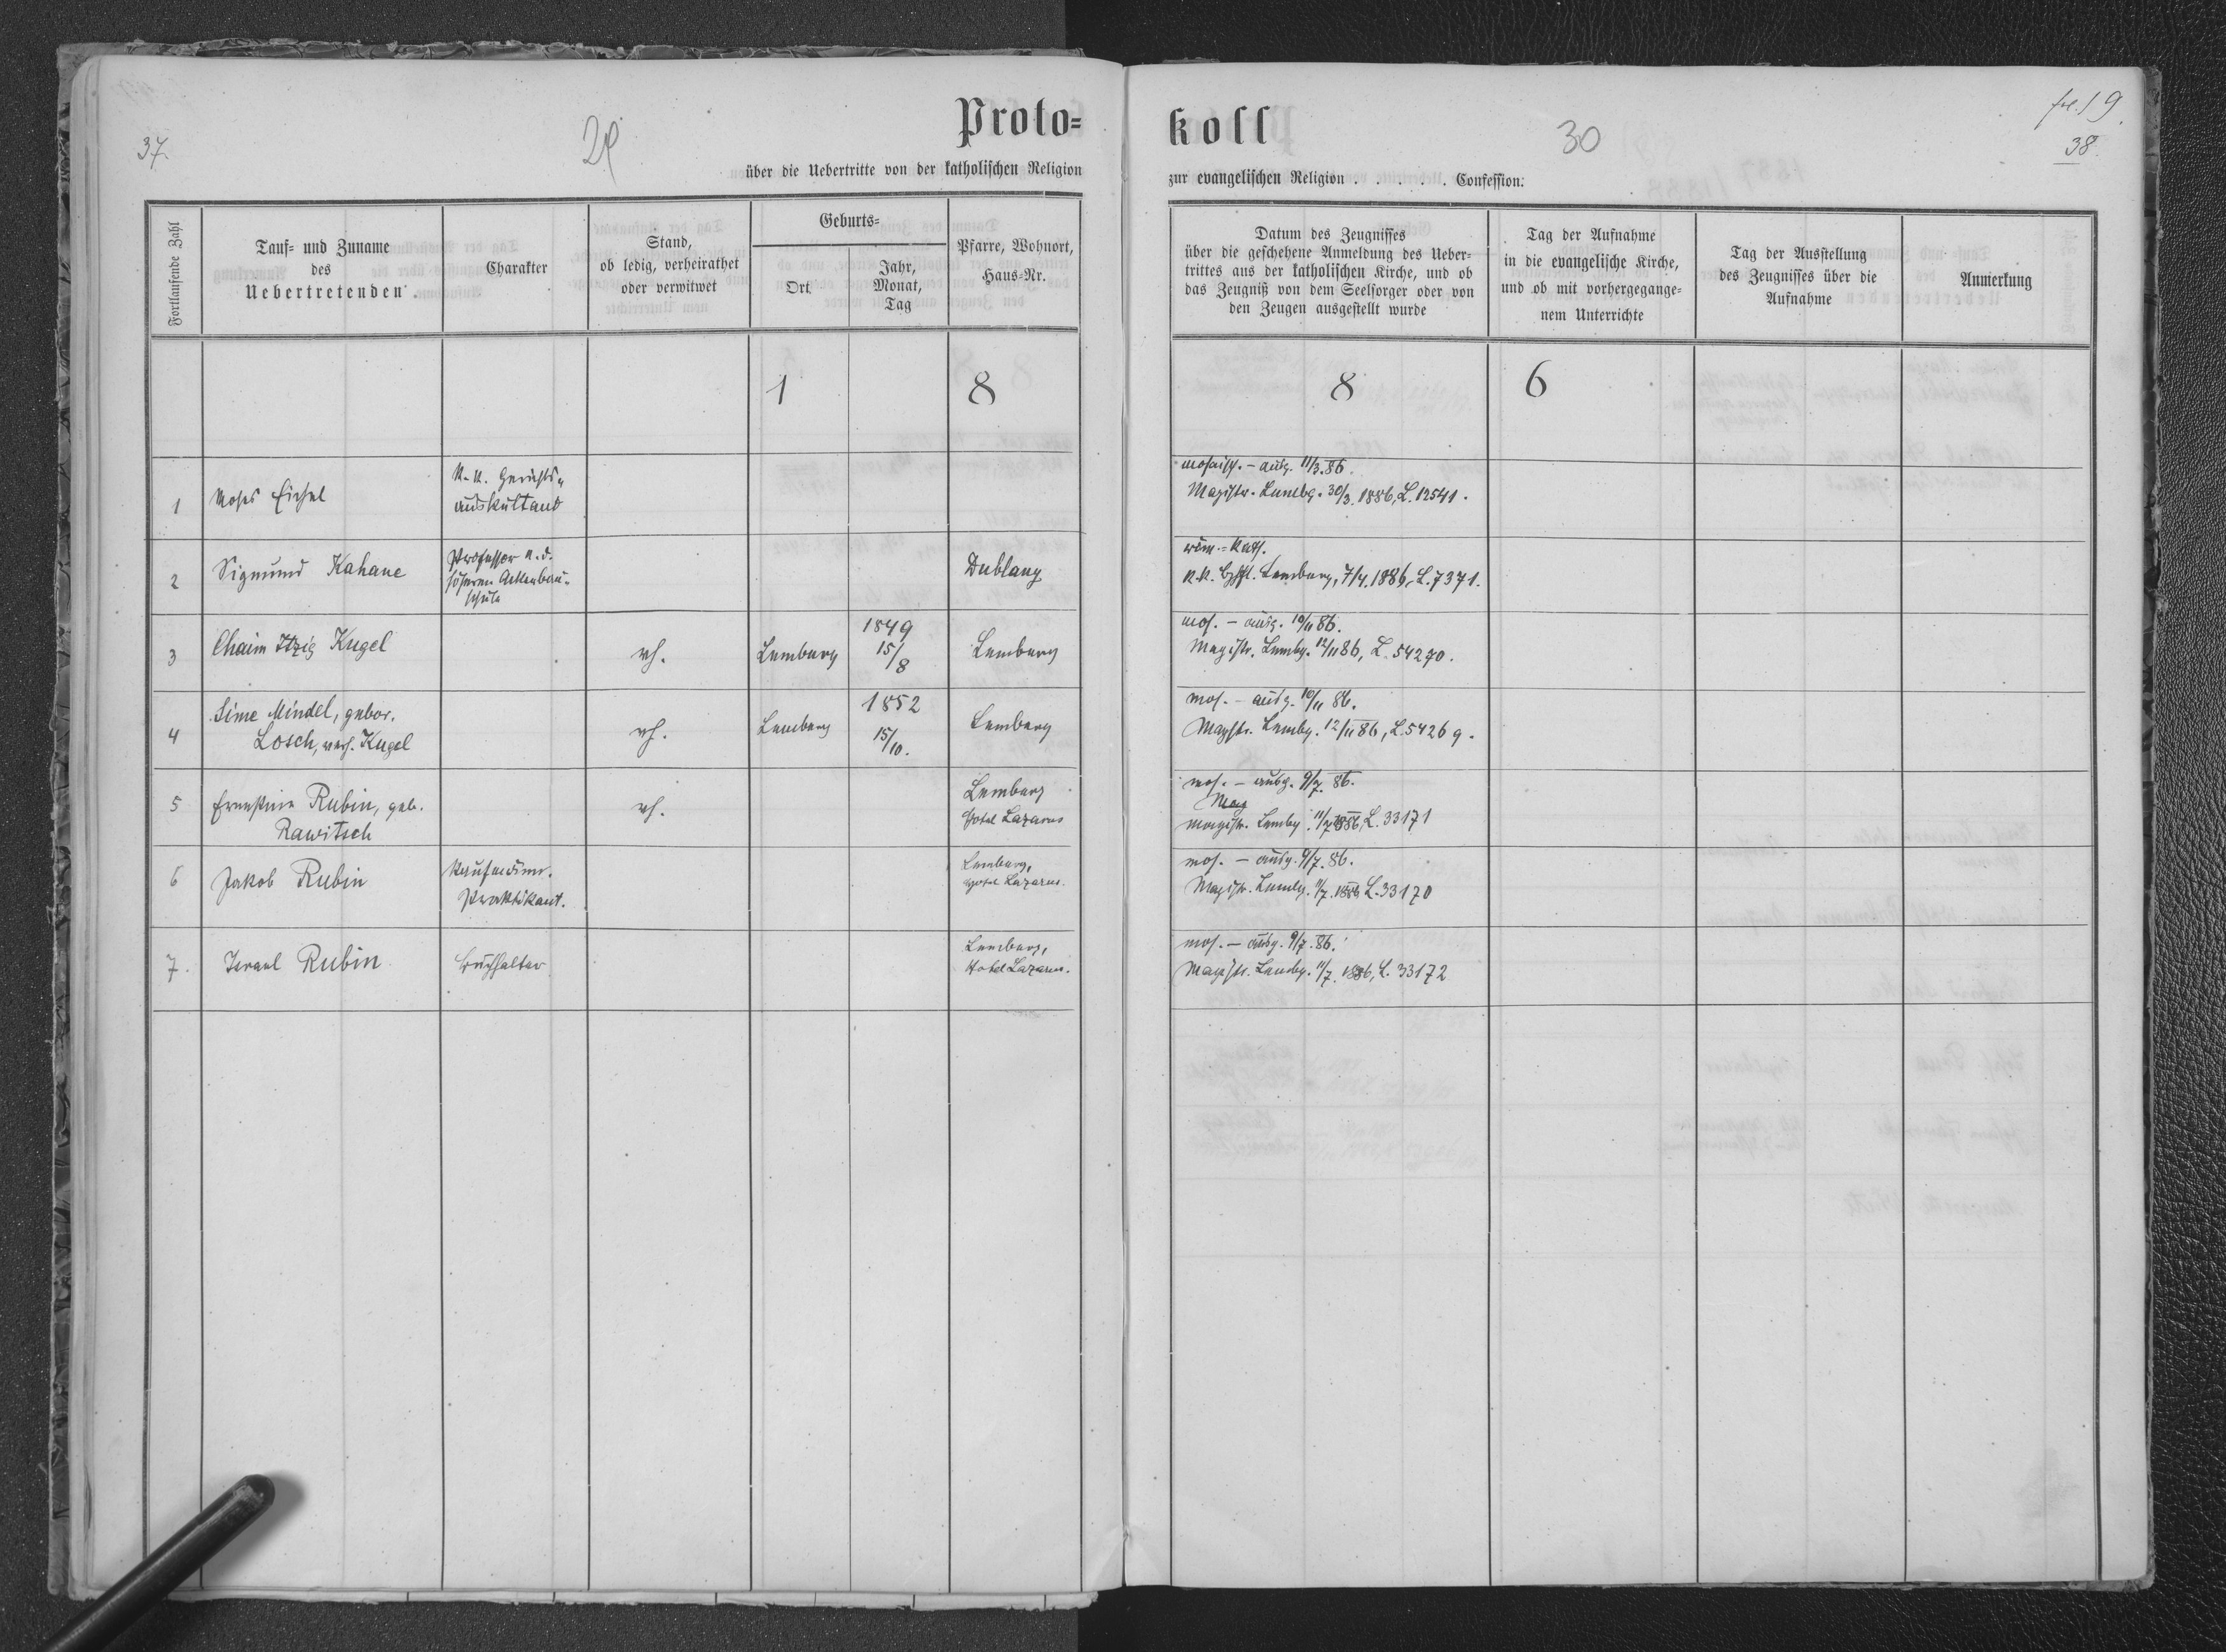 37.
29
Proto=
über die Uebertritte von der katholischen Religion
Fortlaufende Zahl
Tauf= und Zuname
des
Uebertretenden.
Charakter
Stand,
ob ledig, verheirathet
oder verwitwet
Geburts=
Ort
Jahr,
Monat,
Tag
Pfarre, Wohnort,
Haus=Nr.
1 8
1
Moses Eichel
K. K. Gerichts-
auskultant
2
Sigmund Kahane
Professor a. d.
höheren Ackerbau-
schule
Dublany
3
Chaim Itzig Kugel
vh.
Lemberg
1849
15/8
Lemberg
4
Sime Mindel, gebor.
Losch, verh. Kugel
vh.
Lemberg
1852
15/10.
Lemberg
5
Ernestine Rubin, geb.
Rawitsch
vh.
Lemberg
Hotel Lazarus
6
Jakob Rubin
Kaufmänn.
Praktikant.
Lemberg,
Hotel Lazarus.
7.
Israel Rubin
Buchhalter
Lemberg,
Hotel Lazarus.
koll
30
fol. 19.
38.
zur evangelischen Religion . . . . . . Confession.
Datum des Zeugnisses
über die geschehene Anmeldung des Ueber=
trittes aus der katholischen Kirche, und ob
das Zeugniß von dem Seelsorger oder von
den Zeugen ausgestellt wurde
Tag der Aufnahme
in die evangelische Kirche,
und ob mit vorhergegange=
nem Unterrichte
Tag der Ausstellung
des Zeugnisses über die
Aufnahme
Anmerkung
8 6
mosaisch. – ausg. 11/3.86.
Magistr. Lembg. 30/3. 1886, L. 12541.
röm.=kath.
K.K. Bzhft. Lemberg, 7/4. 1886, L. 7371.
mos. – ausg. 10/11 86.
Magistr. Lembg. 12/11 86, L. 54270.
mos. – ausg. 10/11 86.
Magistr. Lembg. 12/11 86, L. 54269.
mos. – ausg. 9/7. 86.
Mag
Magistr. Lembg. 11/7 1886, L. 33171
mos. – ausg. 9/7. 86.
Magistr. Lembg. 11/7. 1886 L. 33170
mos. – ausg. 9/7. 86.
Magistr. Lembg. 11/7. 1886, L. 33172